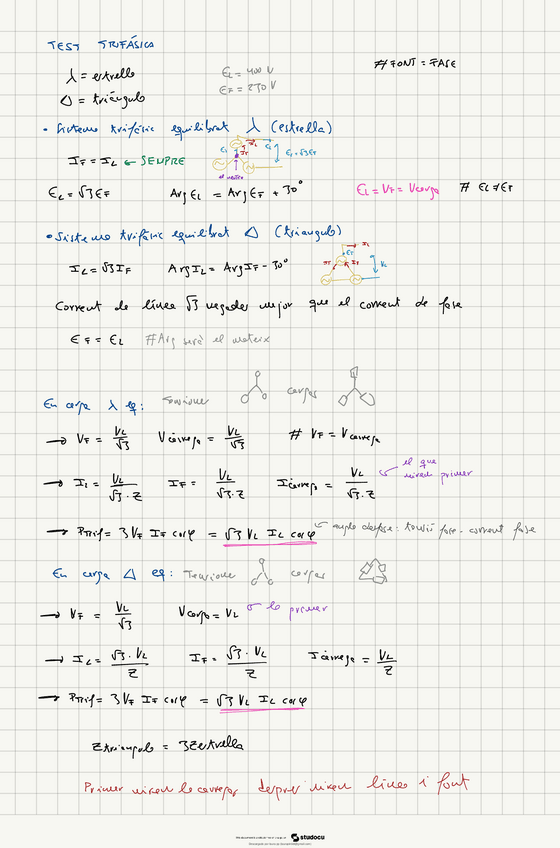 TEST TRIFÁSICA
λ = estrella
Δ = triángulo
EL = 400 V
EF = 230 V
# FONT = FASE
• Sistema trifàsic equilibrat λ (estrella)
IF = IL ← SEMPRE
EL = √3 EF
EL = √3 EF Arg EL = Arg EF + 30°
EL = VF = Vcarga # EL ≠ EF
• Sistema trifàsic equilibrat Δ (triangulo)
IL = √3 IF Arg IL = Arg IF - 30°
Corrent de línea √3 vegades major que el corrent de fase
EF = EL # Arg serà el mateix
En carga λ eq: Tensione cargas
→ VF = VL/√3 Vcàrrega = VL/√3 # VF = Vcarrega
→ IL = VL/√3·Z IF = VL/√3·Z Icàrrega = VL/√3·Z
el que
miren primer
→ PTrif = 3 VF IF cosφ = √3 VL IL cosφ
angle desfase: tensió fase - corrent fase
En carga Δ eq: Tensione cargas
→ VF = VL/√3 Vcarga = VL lo primer
→ IL = √3·VL/Z IF = √3·VL/Z Icàrrega = VL/Z
→ PTrif = 3 VF IF cosφ = √3 VL IL cosφ
Ztriangulo = 3Zestrella
Primer miren le carregas despres miren linea i font
studocu